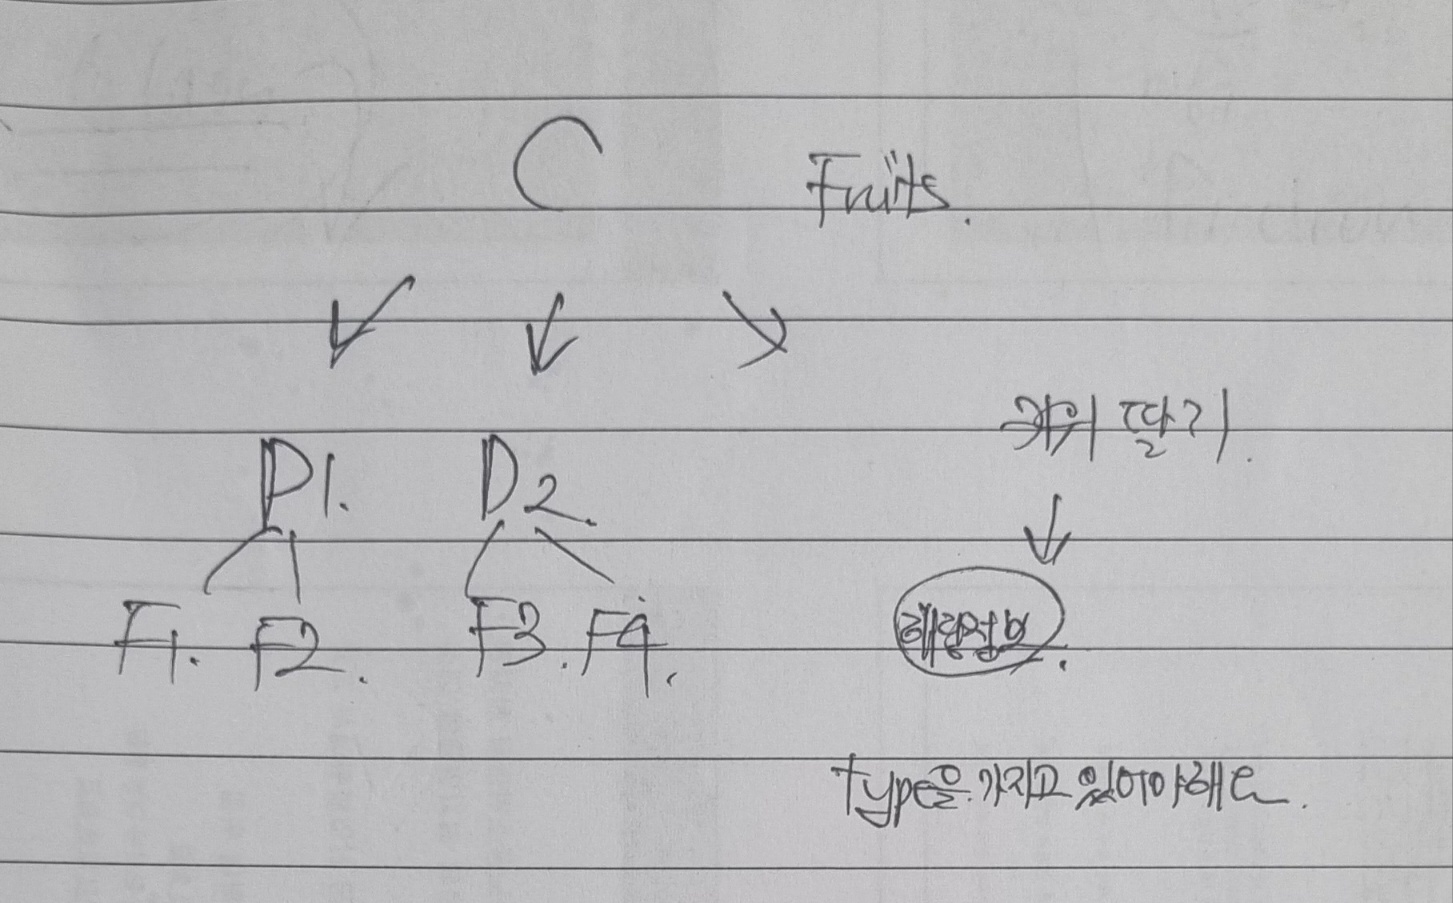 C Fruits.
키위 딸기.
D1. D2.
해당정보.
F1. F2. F3. F4.
type을 가지고 있어야해요.